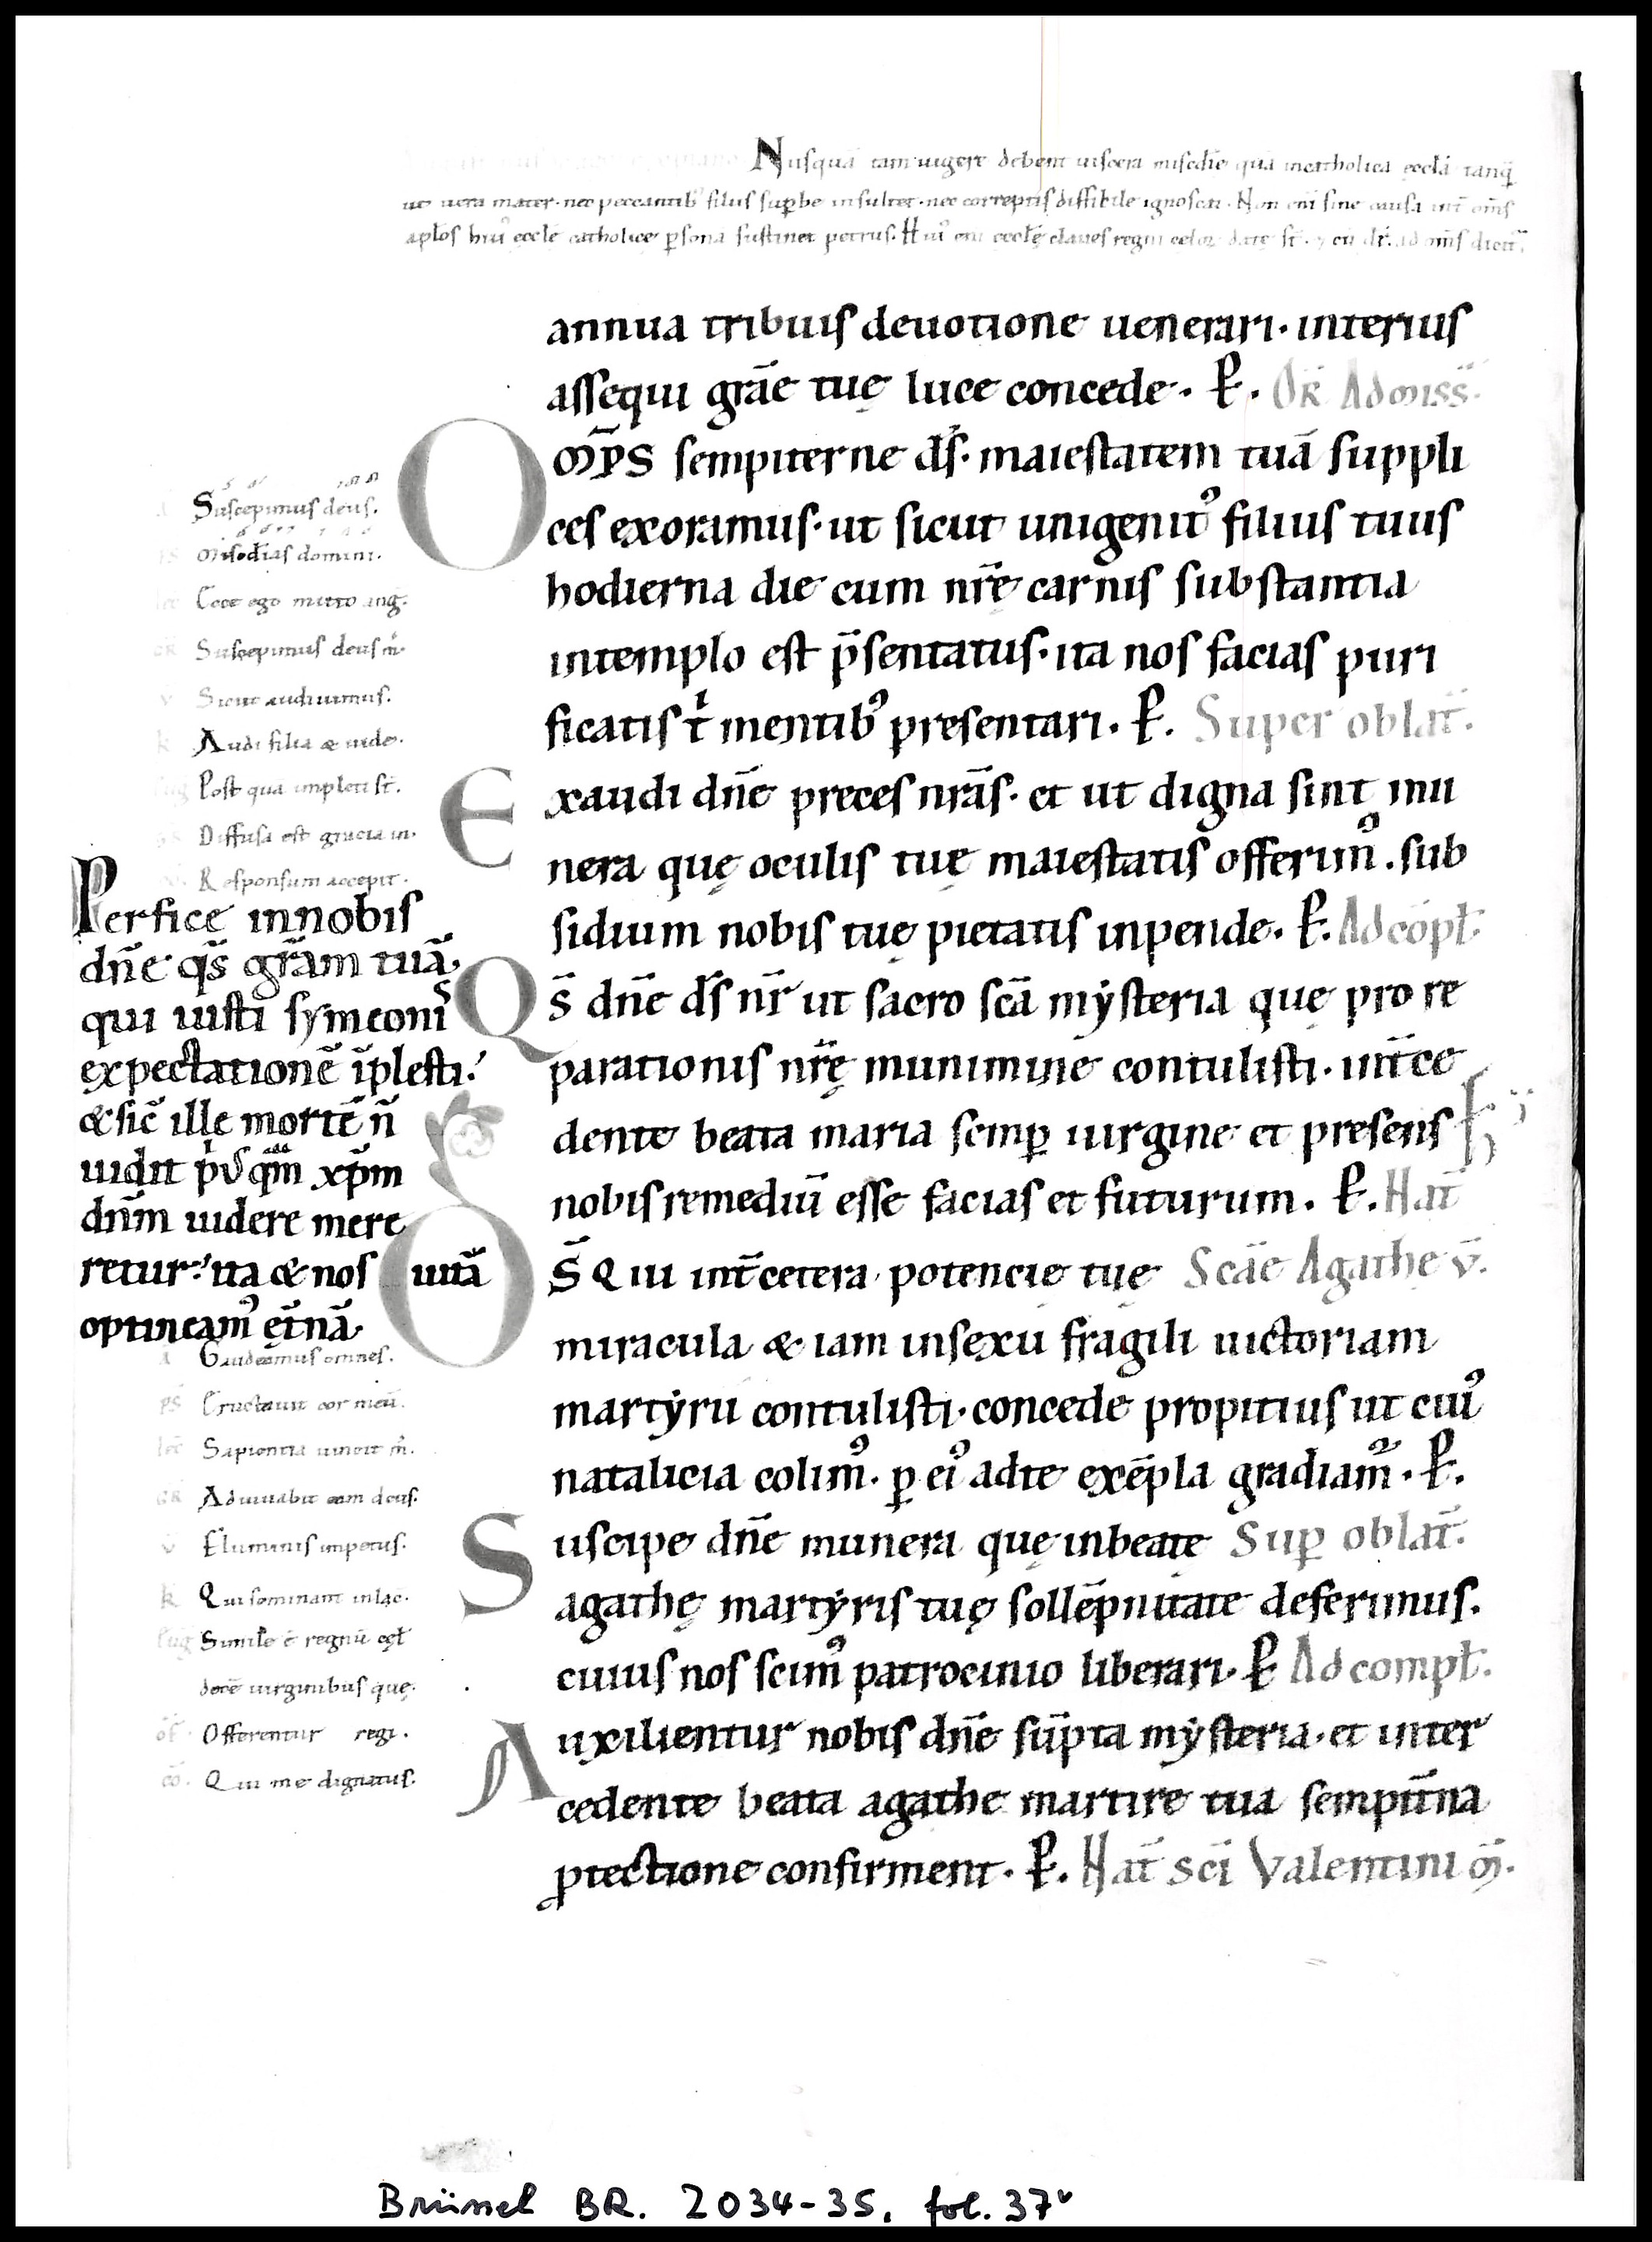 Nusquã tam uigere debent uiscera misc̄die quã incatholica eccl̄a tanq̄
ut uera mater· nec peccantib᷒ filiis sup̱be insultet· nec correptis difficile ignoscat· Non eni sine causa int̄ om̄s
apl̄os hui᷒ eccl̄e catholice p̱sona sustinet petrus. Hui᷒ eni eccl̄ę claues regni celoꝝ date st̄· ad om̄s dicit᷑
annua tribuis deuotione uenerari· interius
assequi gr̄ae tuę luce concede· P̱. OR̄ Ad miss̄·
Om̄ps sempiterne d̄s· maiestatem tuã suppli
ces exoramus· ut sicut unigenit᷒ filius tuus
hodierna die cum nr̄ę carnis substantia
intemplo est p̄sentatus· ita nos facias puri
ficatis t̄ mentib᷒ presentari· P̱. Super oblat̄·
Exaudi dn̄e preces nr̄as· et ut digna sint mu
nera quę oculis tuę maiestatis offerim᷒· sub
sidium nobis tuę pietatis inpende· P̱. Ad cōpł·
Qs̄ dn̄e d̄s nr̄ ut sacro sc̄a mẏsteria que pro re
parationis nr̄ę munimine contulisti· int̄ce
dente beata maria semp̱ uirgine et presens
nobis remediũ esse facias et futurum· P̱. Nat̄
Ds̄ Qui int̄cetera potencię tuę Scāe Agathe v̄.
miracula & iam insexu fragili uictoriam
martẏrii contulisti· concede propitius ut cui᷒
natalicia colim᷒· p̱ ei᷒ adte exēpla gradiam᷑· P̱.
Suscipe dn̄e munera quę inbeatę Sup̱ oblat̄·
agathę martẏris tuę sollēpnitate deferimus.
cuius nos scim᷒ patrocinio liberari· P̱ Ad compł·
Auxilientur nobis dn̄e sūpta mẏsteria· et inter
cedente beata agathe martire tua sempit̄na
ꝓtectione confirment· P̱. Nat̄ sc̄i Valentini m̄·
Suscepimus deus.
ps Misc̄dias domini.
lec Ecce ego mitto ang̃.
GR Suscepimus deus m̄·
v Sicut audiuimus.
Audi filia & uide.
Post quã impleti st̄.
Diffusa est gracia in.
Responsum accepit.
Perfice innobis
dn̄e qs̄ gr̄am tuã·
qui iusti sẏmeonis
expectationẽ īplesti·
& sic̄ ille mortē n̄
uidit p̄us qm̄ xp̄m
dn̄m uidere mere
retur· ita & nos uitã
optineam᷒ et̄nã·
Gaudeamus omnes.
ps Eructauit cor meũ.
lec Sapientia uincit m̄.
GR Adiuuabit eam deus.
v Fluminis impetus.
Qui seminant inlac̄.
Simile ē regnũ cęł
decē uirginibus quę·
of Offerentur regi.
cō. Qui me dignatus.
Brüssel BR. 2034-35, fol. 37v